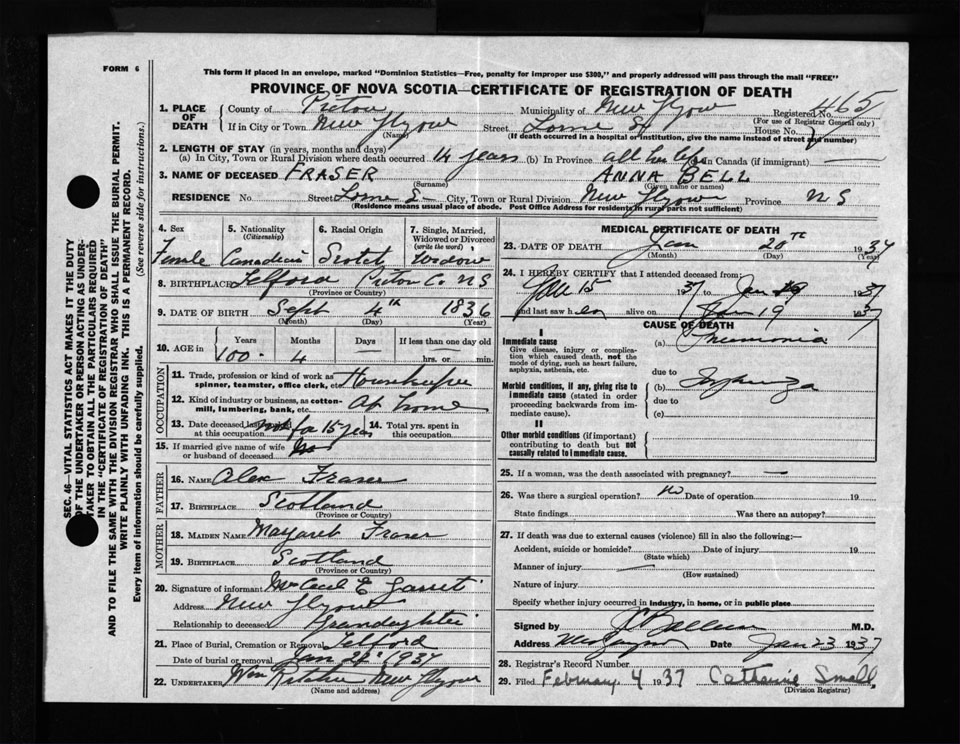 FORM 6
This form if placed in an envelope, marked "Dominion Statistics—Free, penalty for improper use $300," and properly addressed will pass through the mail "FREE"
PROVINCE OF NOVA SCOTIA—CERTIFICATE OF REGISTRATION OF DEATH
1. PLACE OF DEATH County of Pictou Municipality of New Glasgow Registered No. 465
(For use of Registrar General only)
If in City or Town New Glasgow Street Lorne St House No.
(Name) (If death occurred in a hospital or institution, give the name instead of street and number)
2. LENGTH OF STAY (in years, months and days)
(a) In City, Town or Rural Division where death occurred 14 years (b) In Province all her life (c) In Canada (if immigrant)
3. NAME OF DECEASED FRASER ANNA BELL
(Surname) (Given name or names)
RESIDENCE No. Street Lorne St City, Town or Rural Division New Glasgow Province N S
(Residence means usual place of abode. Post Office Address for residents in rural parts not sufficient)
4. Sex Female
5. Nationality (Citizenship) Canadian
6. Racial Origin Scotch
7. Single, Married, Widowed or Divorced (write the word) Widow
8. BIRTHPLACE Telford Pictou Co. N S
(Province or Country)
9. DATE OF BIRTH Sept 4th 1836
(Month) (Day) (Year)
10. AGE in Years Months Days If less than one day old
100 4 — hrs. or min.
OCCUPATION
11. Trade, profession or kind of work as spinner, teamster, office clerk, etc. Housekeeper
12. Kind of industry or business, as cotton-mill, lumbering, bank, etc. At home
13. Date deceased last worked at this occupation not for 15 years 14. Total yrs. spent in this occupation
15. If married give name of wife or husband of deceased
FATHER
16. NAME Alex Fraser
17. BIRTHPLACE Scotland
(Province or Country)
MOTHER
18. MAIDEN NAME Margaret Fraser
19. BIRTHPLACE Scotland
(Province or Country)
20. Signature of informant Mrs Cecil E
Address New Glasgow
Relationship to deceased Grandaughter
21. Place of Burial, Cremation or Removal Telford
Date of burial or removal Jan 22 1937
22. UNDERTAKER Wm New Glasgow
(Name and address)
MEDICAL CERTIFICATE OF DEATH
23. DATE OF DEATH Jan 20th 1937
(Month) (Day) (Year)
24. I HEREBY CERTIFY that I attended deceased from:
Jan 15 1937 to Jan 19 1937
and last saw her alive on Jan 19 1937
CAUSE OF DEATH
I
Immediate cause (a) Pneumonia
Give disease, injury or complication which caused death, not the mode of dying, such as heart failure, asphyxia, asthenia, etc.
due to
Morbid conditions, if any, giving rise to immediate cause (stated in order proceeding backwards from immediate cause). (b) Influenza
due to
(c)
II
Other morbid conditions (if important) contributing to death but not causally related to immediate cause.
25. If a woman, was the death associated with pregnancy? —
26. Was there a surgical operation? no Date of operation 19
State findings Was there an autopsy?
27. If death was due to external causes (violence) fill in also the following:—
Accident, suicide or homicide? Date of injury 19
(State which)
Manner of injury —
(How sustained)
Nature of injury
Specify whether injury occurred in industry, in home, or in public place
Signed by M.D.
Address New Glasgow Date Jan 23 1937
28. Registrar's Record Number
29. Filed February 4 1937 Catharine Small
(Division Registrar)
SEC. 46—VITAL STATISTICS ACT MAKES IT THE DUTY
OF THE UNDERTAKER OR PERSON ACTING AS UNDERTAKER
TO OBTAIN ALL THE PARTICULARS REQUIRED
IN THE "CERTIFICATE OF REGISTRATION OF DEATH"
AND TO FILE THE SAME WITH THE DIVISION REGISTRAR WHO SHALL ISSUE THE BURIAL PERMIT.
WRITE PLAINLY WITH UNFADING INK. THIS IS A PERMANENT RECORD.
Every item of information should be carefully supplied. (See reverse side for instructions.)